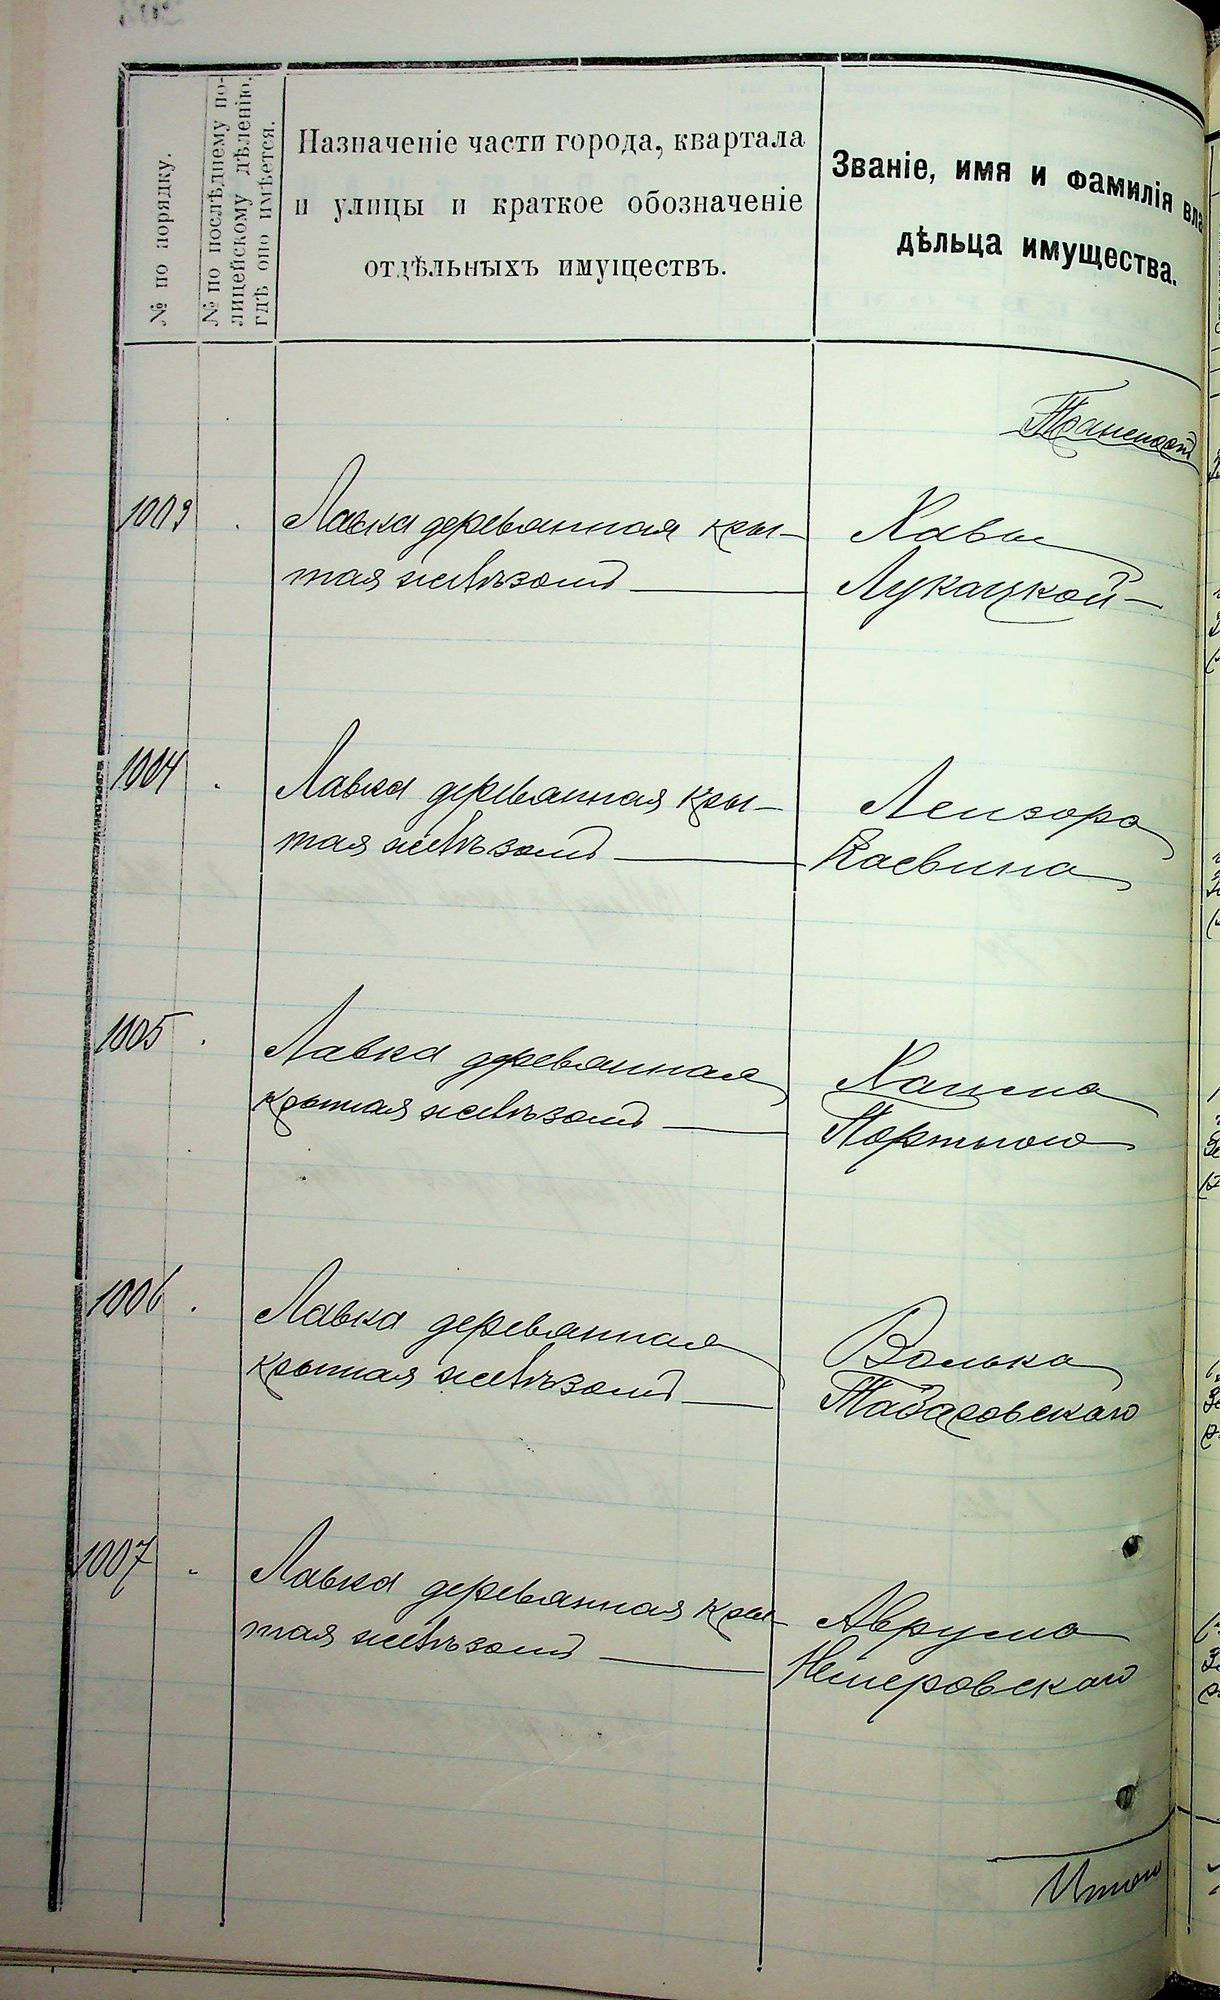 № по порядку.
№ по послѣднему по-
лицейскому дѣленію,
гдѣ оно имѣется.
Назначеніе части города, квартала
и улицы и краткое обозначеніе
отдѣльныхъ имуществъ.
Званіе, имя и фамилія вла
дѣльца имущества.
Транспортъ
1003
Лавка деревянная кры-
тая желѣзомъ
Хавы
Лукацкой
1004
Лавка деревянная кры-
тая желѣзомъ
Лейзора
Расвина
1005
Лавка деревянная
крытая желѣзомъ
Хаима
Портного
1006
Лавка деревянная
крытая желѣзомъ
Волька
1007
Лавка деревянная кры-
тая желѣзомъ
Аврума
Немеровскаго
Итого